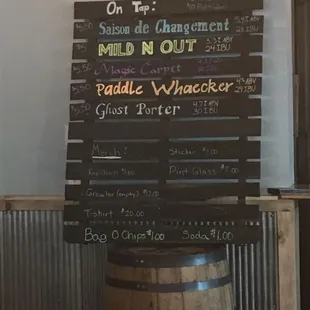 On Tap:
$5.50 Saison de Changement 5.4% ABV 28 IBU
MILD N OUT 3.3% ABV 24 IBU
Magic Carpet
Paddle Whaecker
$5.50 Ghost Porter 4.7% ABV 30 IBU
Merch: Sticker
Pint Glass $7.00
Growler (empty)
T-shirt $20.00
Bag O Chips $1.00 Soda $1.00